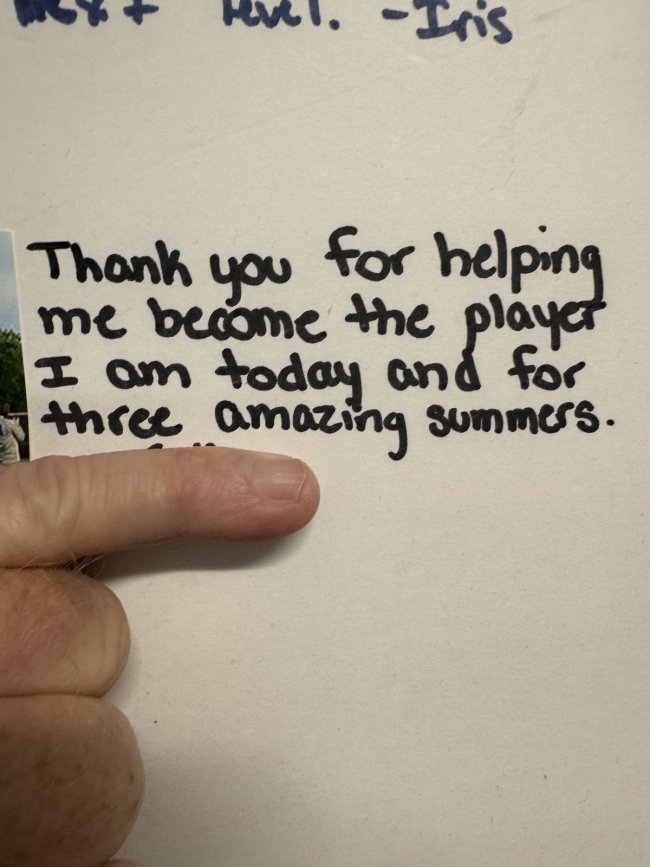 next level. -Iris
Thank you for helping
me become the player
I am today and for
three amazing summers.